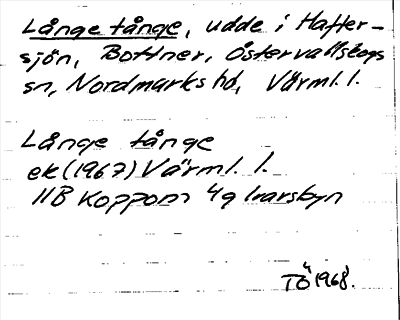 Långe tånge, udde i Hafter-
sjön, Bottner, Östervallskogs
sn, Nordmarks hd, Värml. l.
Långe tånge
ek (1967) Värml. l.
11B Koppom 4g Ivarsbyn
TÖ 1968